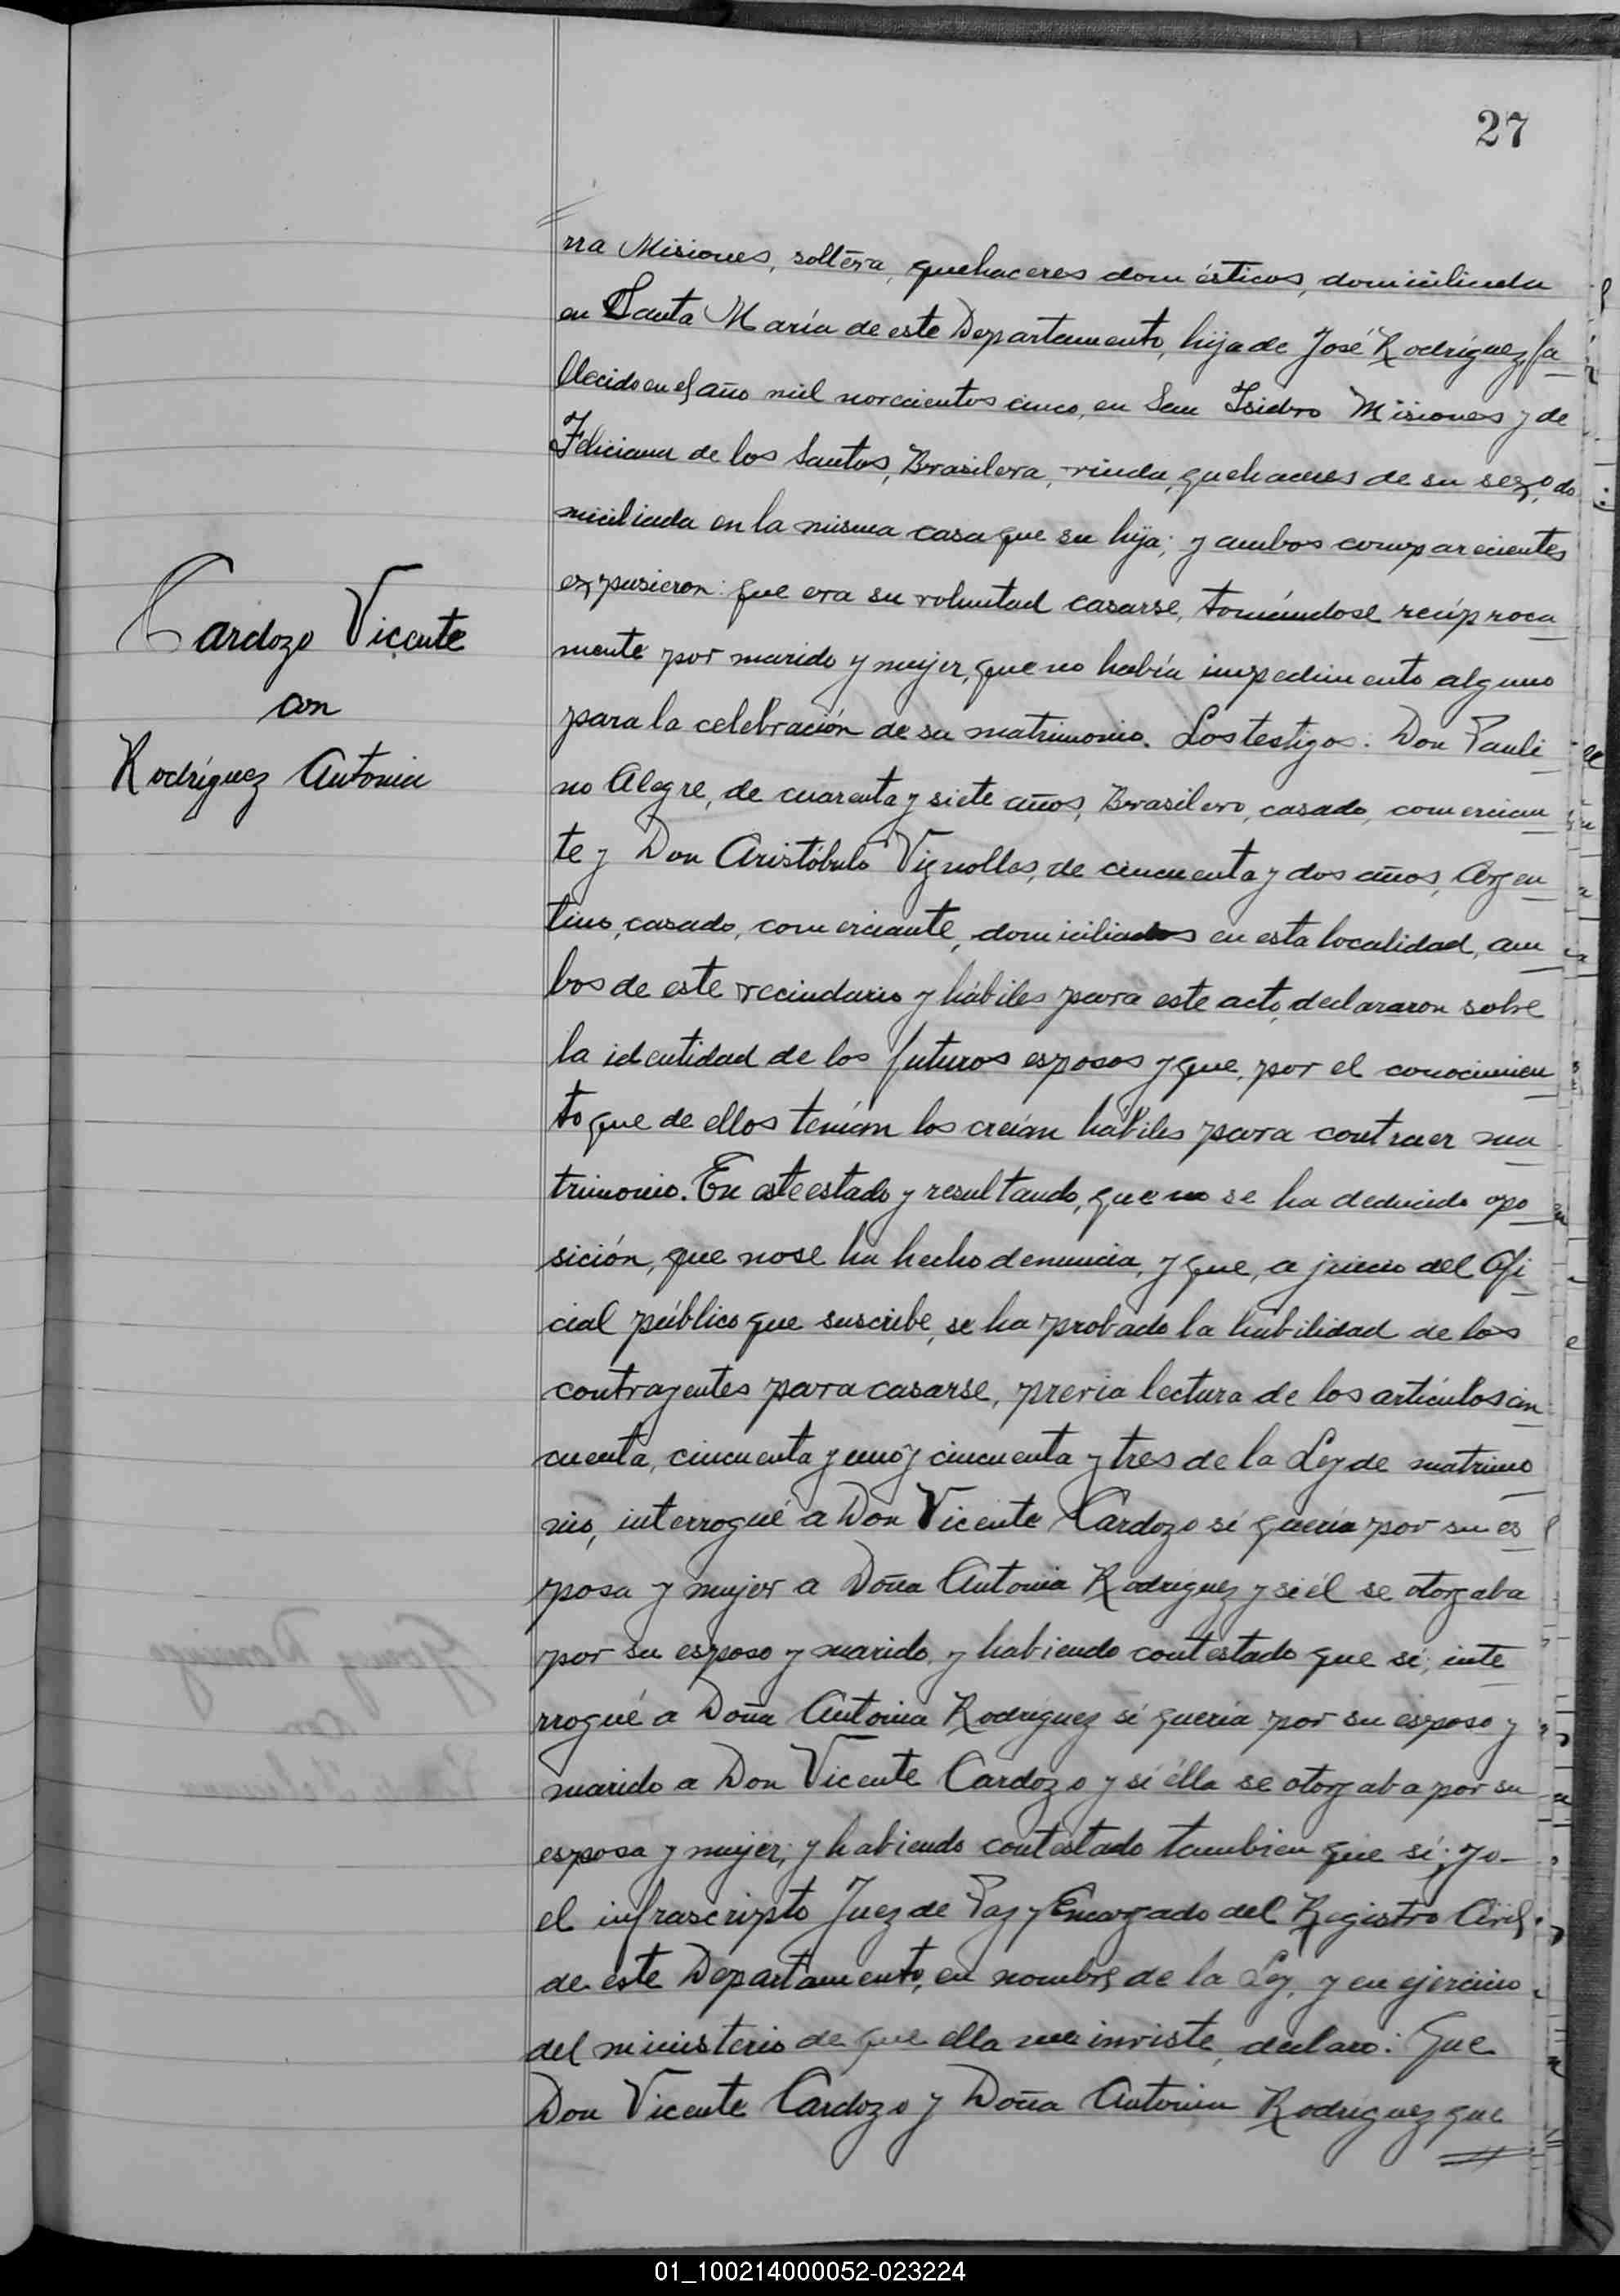 27
rra Misiones, soltera, quehaceres domésticos, domiciliada
en Santa María de este Departamento, hija de José Rodríguez, fa
llecido en el año mil novecientos cinco, en San Isidro Misiones y de
Feliciana de los Santos, Brasilera, viuda, quehaceres de su sexo, do
miciliada en la misma casa que su hija; y ambos comparecientes
expusieron: que era su voluntad casarse, tomándose recíproca
mente por marido y mujer, que no había impedimento alguno
para la celebración de su matrimonio. Los testigos: Don Pauli
no Alegre, de cuarenta y siete años, Brasilero, casado, comercian
te y Don Aristóbulo Vignolles, de cincuenta y dos años, Argen
tino, casado, comerciante, domiciliados en esta localidad, am
bos de este vecindario y hábiles para este acto, declararon sobre
la identidad de los futuros esposos y que, por el conocimien
to que de ellos tenían los creían hábiles para contraer ma
trimonio. En este estado y resultando, que no se ha deducido opo
sición, que no se ha hecho denuncia, y que, a juicio del Ofi
cial público que suscribe, se ha probado la habilidad de los
contrayentes para casarse, previa lectura de los artículos cin
cuenta, cincuenta y uno y cincuenta y tres de la Ley de matrimo
nio, interrogué a Don Vicente Cardozo sí quería por su es
posa y mujer a Doña Antonia Rodríguez y si él se otorgaba
por su esposo y marido, y habiendo contestado que sí; inte
rrogué a Doña Antonia Rodríguez sí quería por su esposo y
marido a Don Vicente Cardozo y sí élla se otorgaba por su
esposa y mujer; y habiendo contestado tambien que sí; yo
el infrascripto Juez de Paz y Encargado del Registro Civil
de este Departamento, en nombre de la Ley, y en ejercicio
del ministerio de que ella me inviste, declaro: Que
Don Vicente Cardozo y Doña Antonia Rodríguez que
Cardozo Vicente
con
Rodríguez Antonia
01_100214000052-023224